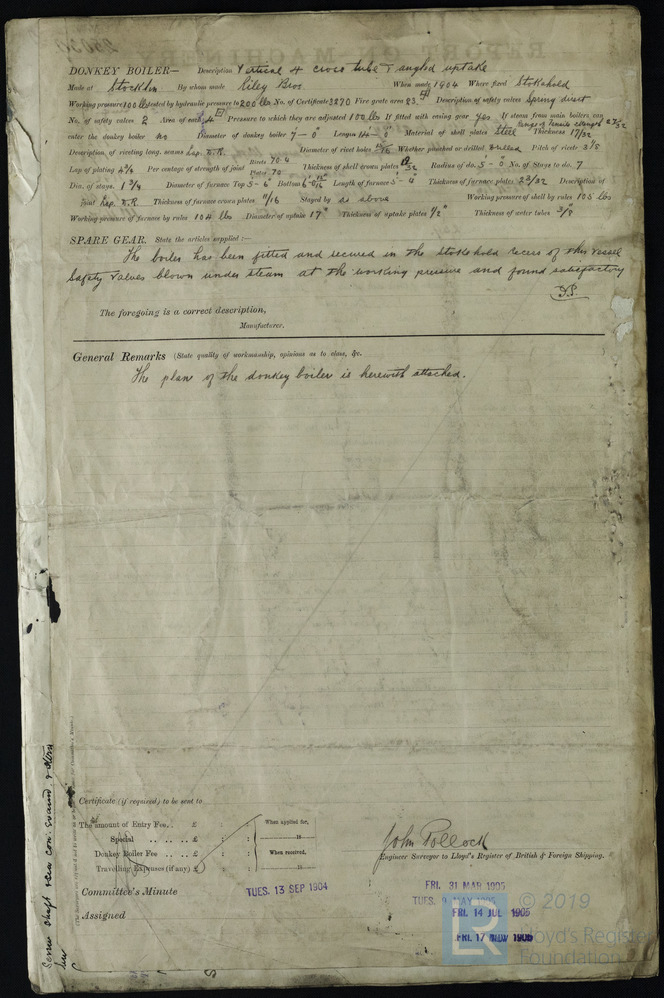 DONKEY BOILER— Description Vertical 4 cross tube & angled uptake
Made at Stockton By whom made Riley Bros. When made 1904 Where fixed Stokehold
Working pressure 100 lbs tested by hydraulic pressure to 200 lbs No. of Certificate 3870 Fire grate area 23 Description of safety valves Spring direct
No. of safety valves 2 Area of each Pressure to which they are adjusted 100 lbs If fitted with easing gear yes If steam from main boilers can
enter the donkey boiler no Diameter of donkey boiler 7-0" Length 14-0" Material of shell plates Steel Thickness 17/32
Description of riveting long. seams lap. D.R. Diameter of rivet holes Whether punched or drilled drilled Pitch of rivets 2 7/8
Lap of plating 4 3/4 Per centage of strength of joint Rivets 70.4 Plates 70 Thickness of shell crown plates Radius of do. 5'-0" No. of Stays to do. 7
Dia. of stays. 1 3/4 Diameter of furnace Top 5-6" Bottom Length of furnace 5'-4" Thickness of furnace plates Description of
joint lap. D.R Thickness of furnace crown plates 11/16 Stayed by as above Working pressure of shell by rules 103 lbs
Working pressure of furnace by rules 104 lbs Diameter of uptake 17" Thickness of uptake plates 1/2" Thickness of water tubes 3/8
SPARE GEAR. State the articles supplied:—
The boiler has been fitted and secured in the stokehold recess of this vessel
Safety valves blown under steam at the working pressure and found satisfactory
J.P.
The foregoing is a correct description,
Manufacturer.
General Remarks (State quality of workmanship, opinions as to class, &c.
The plan of the donkey boiler is herewith attached.
Certificate (if required) to be sent to
The amount of Entry Fee.. £ : : When applied for,
Special .. .. .. £ : : 19
Donkey Boiler Fee .. .. £ : : When received,
Travelling Expenses (if any) £ : : 19
John Pollock
Engineer Surveyor to Lloyd's Register of British & Foreign Shipping.
Committee's Minute TUES. 13 SEP 1904 FRI. 31 MAR 1905
TUES. 9 MAY 1905
Assigned FRI. 14 JUL 1905
FRI. 17 NOV 1905
© 2019
Lloyd's Register
Foundation
LR